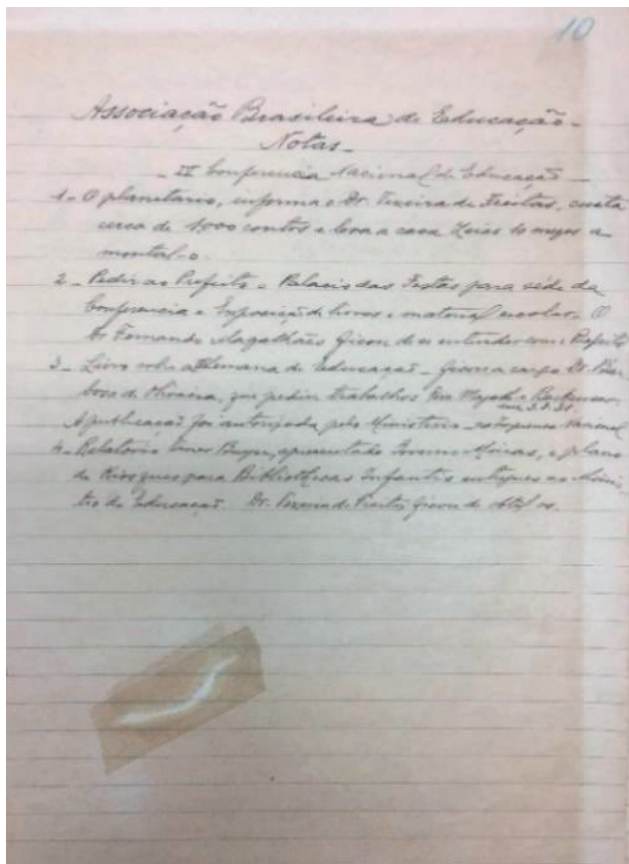 10
Associação Brasileira de Educação -
Notas -
- IV Conferencia Nacional de Educação -
1 - O planetario, informa o Dr. Teixeira de Freitas, custa
cerca de 1.000 contos e leva a casa Zeiss 10 mezes a
montal-o.
2 - Pedir ao Prefeito o Palacio das Festas para séde da
Conferencia e Exposição de livros e material escolar. O
Dr Fernando Magalhães ficou de se entender com o Prefeito
3 - Livro sobre a Semana de Educação - ficou a cargo Dr.
de Oliveira, que pediu trabalhos
A publicação foi autorizada pelo Ministerio - Nacional
4 - Relatorio apresentado Governo Minas, e plano
de Kiosques para Bibliothecas Infantis entregues ao Minis-
tro da Educação. Dr. Teixeira de Freitas ficou de obtel-os.